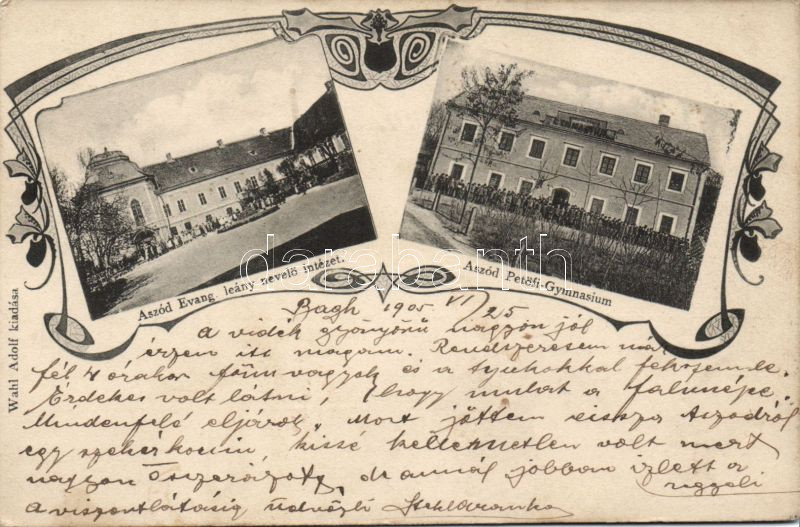 Aszód Evang. leány nevelő intézet.
Aszód Petőfi-Gymnasium
Wahl Adolf kiadása
databanth
Bagh 1905 VI/25
A vidék gyönyörű nagyon jól
érzem itt magam. Rendszeresen már
fél 4 órakor fönn vagyok és a tyukokkal fekszem le.
Érdekes volt látni, hogy mulat a falu népe.
Mindenfelé eljárok. Most jöttem vissza Aszódról
egy szekér kocsin, kissé kellemetlen volt mert
nagyon összerázott, de annál jobban izlett a
reggeli
A viszontlátásig üdvözli Aranka